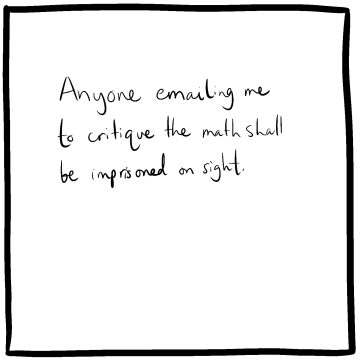 Anyone emailing me
to critique the math shall
be imprisoned on sight.